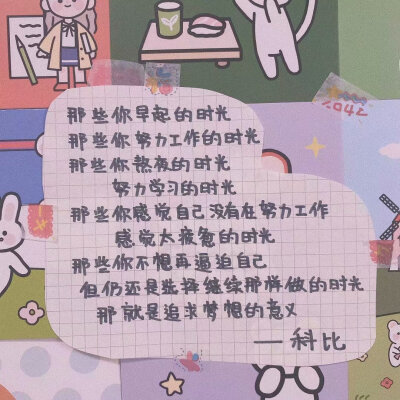 那些你早起的时光
那些你努力工作的时光
那些你熬夜的时光
努力学习的时光
那些你感觉自己没有在努力工作
感觉太疲惫的时光
那些你不想再逼迫自己
但仍还是选择继续那样做的时光
那就是追求梦想的意义
—科比